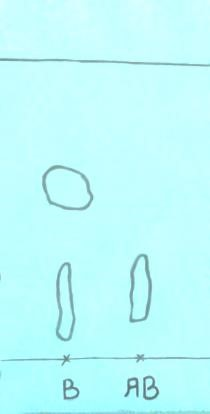 B AB